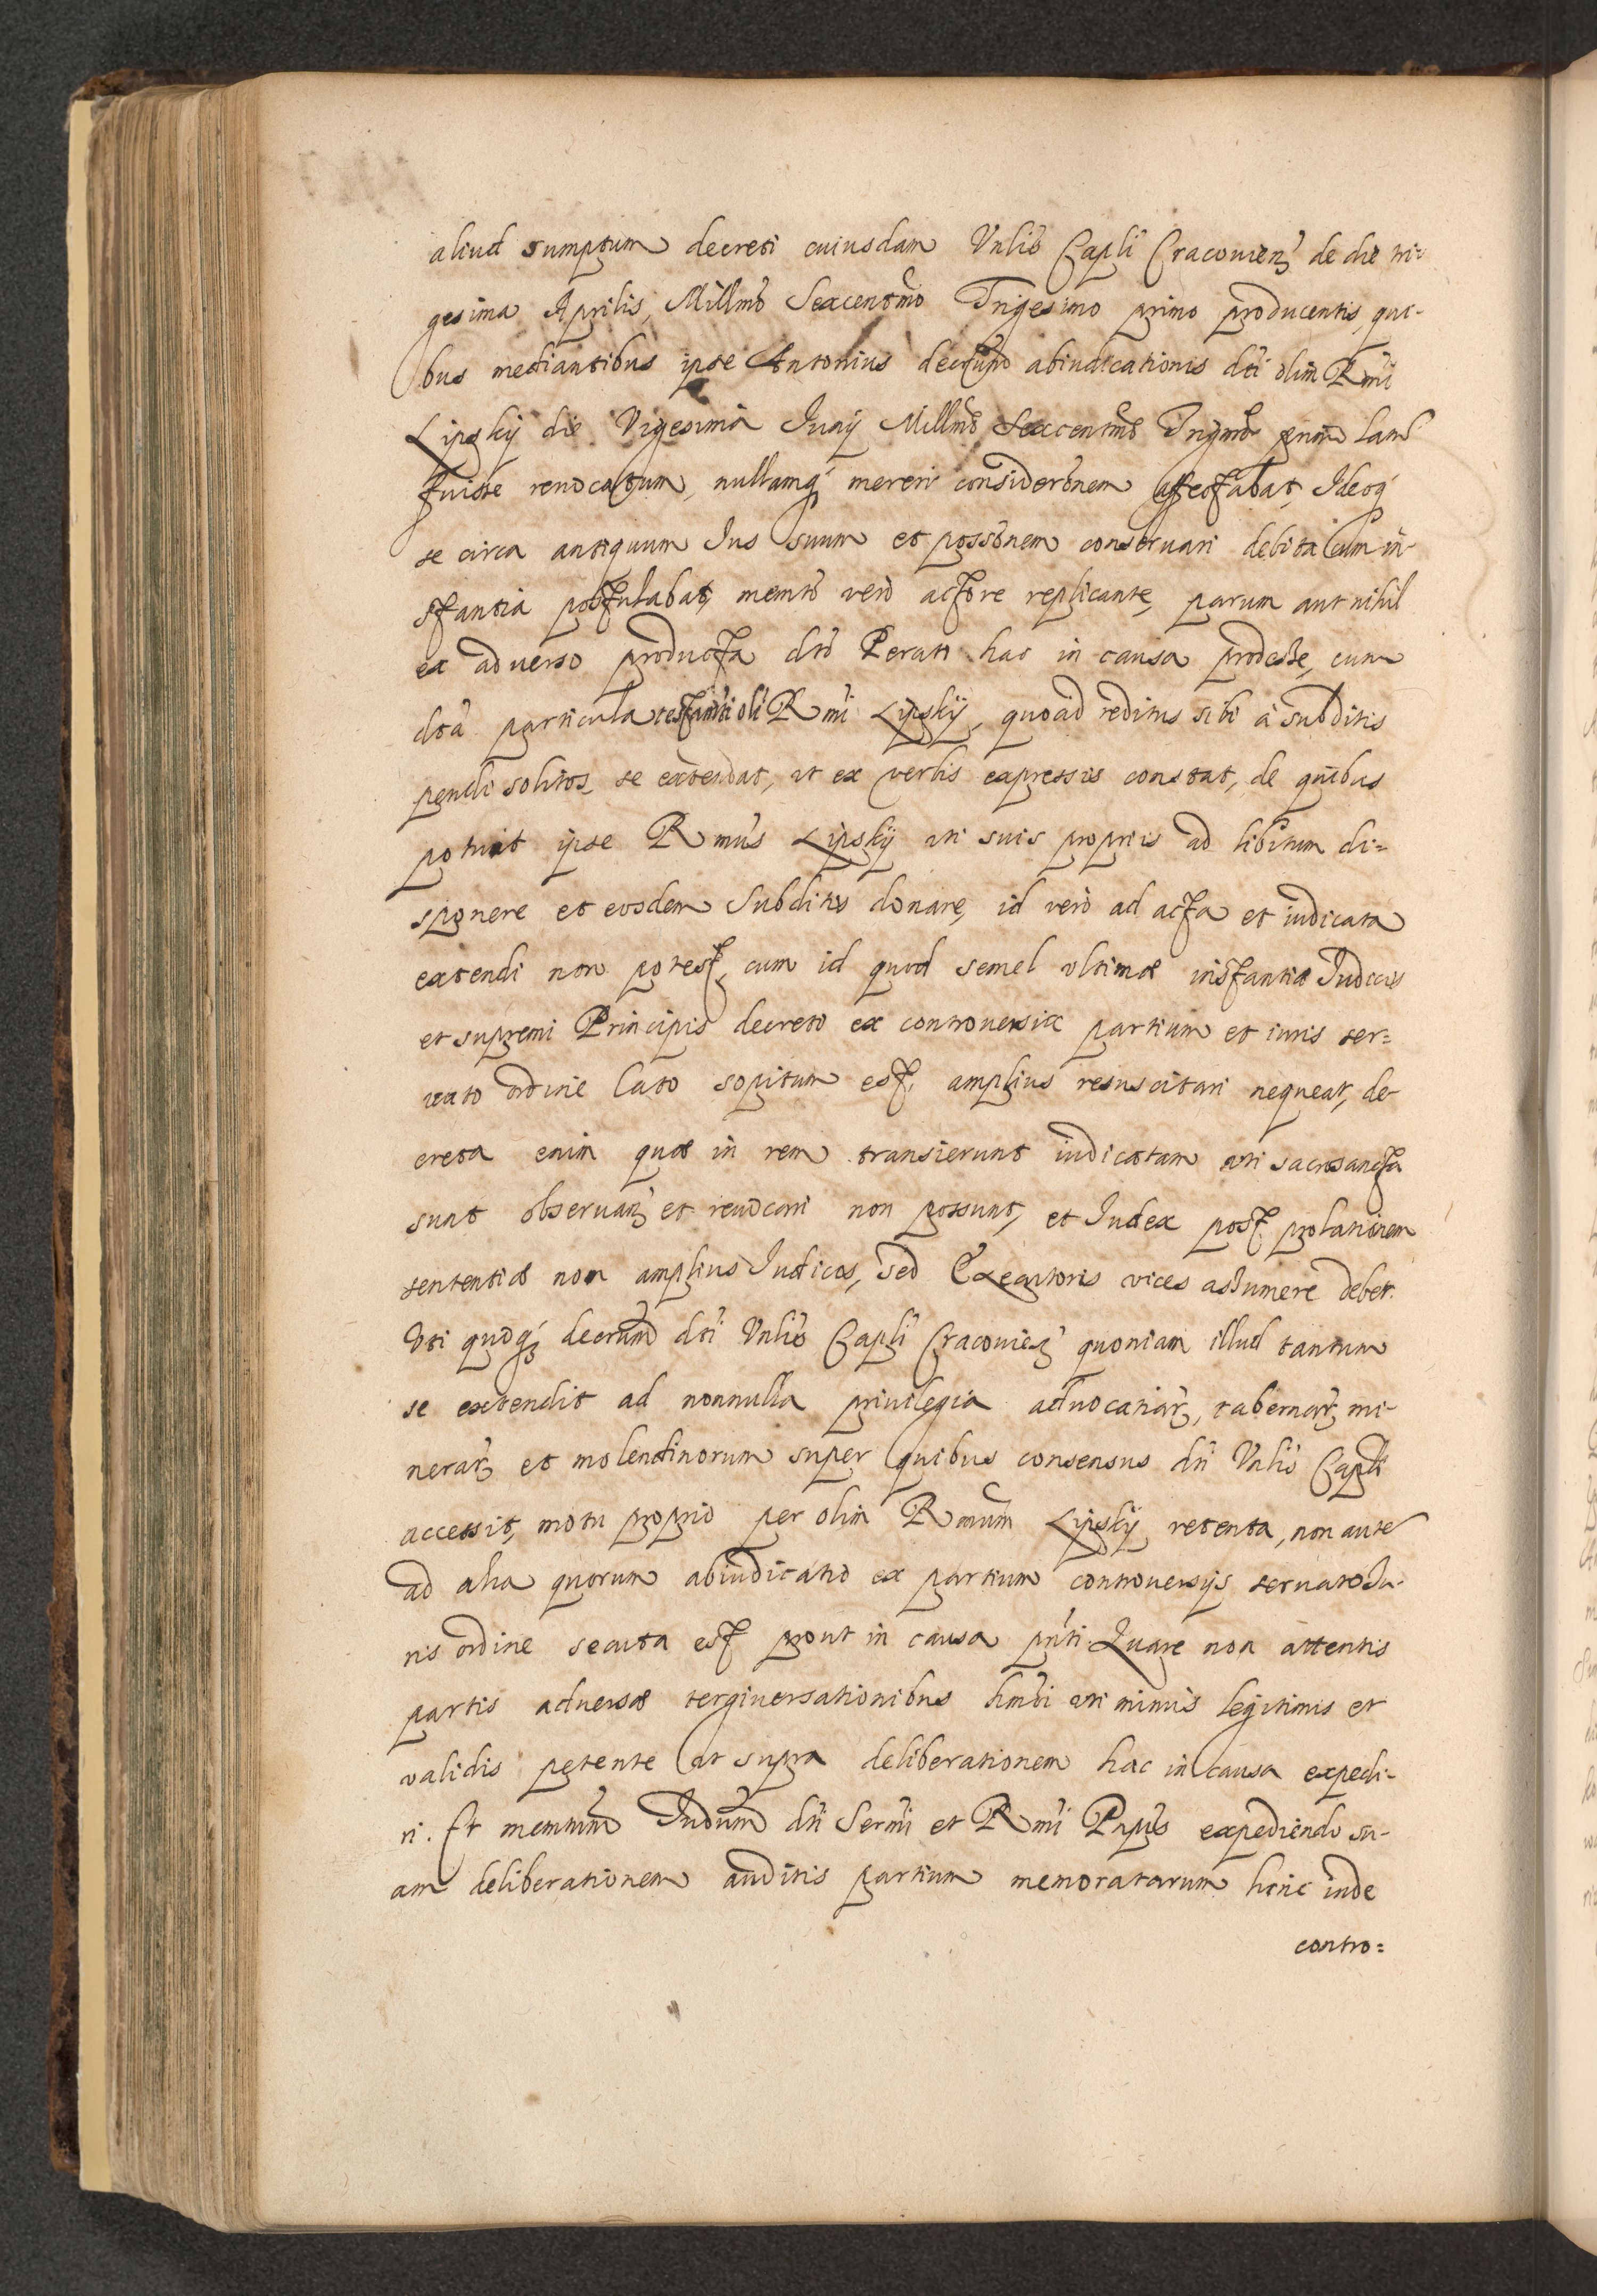 aliud sumptum decreti cuiusdam Vnlis Capli Cracouien̄ de die tri-
gesima Aprilis, Millmo Sexcentmo Trigesimo primo producentis, qui-
bus mediantibus ipse Antonius decrum abiudicationis dti olim Rmi
Lipskÿ die Vigesima Junÿ Millmo Sexcentmo Trigmo primo latum
fuisse reuocatum, nullamq́ mereri consideronem attestabat, Ideoq́
se circa antiquum Jus suum et possonem conseruari debita cum in-
stantia postulabat, memto vero actore replicante, parum aut nihil
ex aduerso producta dto Perati hac in causa prodesse, cum
dta particula testamti oli Rmi Lipskÿ, quoad reditus sibi à subditis
pendi solitos, se extendat, vt ex verbis expressis constat, de quibus
potuit ipse Rmus Lipskÿ vti suis proprijs ad libitum di=
sponere et eosdem Subditis donare, id vero ad acta et iudicata
extendi non potest, cum id quod semel vltimæ instantiæ Judicis
et supremi Principis decreto ex controuersia partium et iuris ser=
uato ordine lato sopitum est, amplius resuscitari nequeat, de-
creta enim quæ in rem transierunt iudicatam vti sacrosancta
sunt obseruanȝ et reuocari non possunt, et Judex post prolationem
sententiæ non amplius Judicis, sed Executoris vices assumere debet.
Vti quoq́ȝ decrum dti Vnlis Capli Cracouieȝ quoniam illud tantum
se extendit ad nonnulla priuilegia aduocatiarȝ, tabernarȝ, mi-
nerarȝ et molendinorum super quibus consensus dti Vnlis Capli
accessit, motu proprio per olim Rmum Lipskÿ retenta, non aute
ad alia quorum abiudicatio ex partium controuersijs seruato Ju-
ris ordine secuta est prout in causa pnti. Quare non attentis
partis aduersæ tergiuersationibus hmoi vti minus legitimis et
validis petente vt supra deliberationem hac in causa expedi-
ri. Et memtum Judum dti Sermi et Rmi Pnpis expediendo su-
am deliberationem auditis partium memoratarum hinc inde
contro=